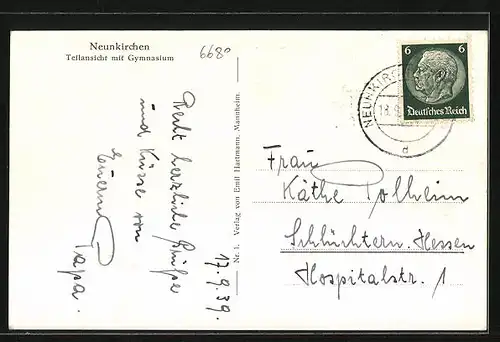 Neunkirchen
Teilansicht mit Gymnasium
6680
17.9.39
Recht herzliche Grüße
und Küsse von
Eurem
Papa.
Nr. 1. Verlag von Emil Hartmann, Mannheim.
NEUNKIRC
d
6 6
Deutsches Reich
Frau
Käthe Polheim
Schlüchtern. Hessen
Hospitalstr. 1